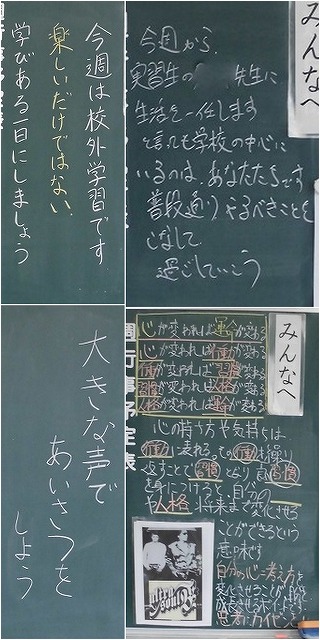 今週は校外学習です
楽しいだけではない、
学びある一日にしましょう
みんなへ
今週から、
実習生の 先生に
生活を一任します
と言っても学校の中心に
いるのは、あなたたちです
普段通りやるべきことを
こなして
過ごしていこう
大きな声で
あいさつを
しよう
週行事予定表
みんなへ
心が変われば
が変わる
心が変われば行動が変わる
行動が変われば習慣が変わる
習慣が変われば人格が変わる
人格が変われば運命が変わる
心の持ち方や気持ちは
行動に表れる。その行動を繰り
返すことで習慣となり、良い習慣
を身につけると、自分の
人格、将来まで変化させる
ことができるという
意味です
自分の 考え方を
変化させることが
成長させるポイント